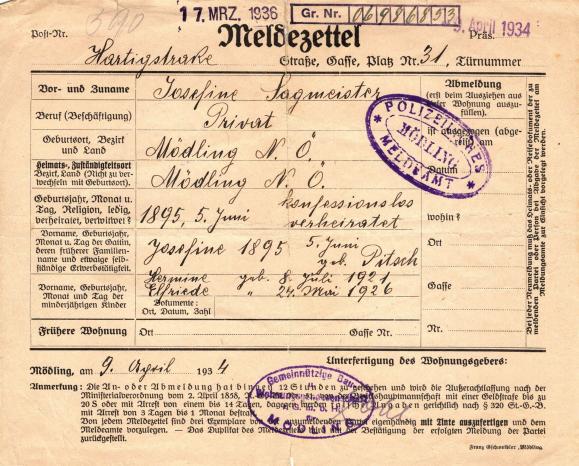 17. MRZ. 1936
Gr. Nr.
9. April 1934
Post-Nr. 590
Meldezettel
Präs.
Hartigstraße Straße, Gasse, Platz Nr. 31, Türnummer
Vor- und Zuname
Josefine Sagmeister
Beruf (Beschäftigung)
Privat
Geburtsort, Bezirk
und Land
Mödling N. Ö.
Heimats-, Zuständigkeitsort
Bezirk, Land (Nicht zu ver-
wechseln mit Geburtsort).
Mödling N. Ö.
Geburtsjahr, Monat u.
Tag, Religion, ledig,
verheiratet, verwitwet?
1895, 5. Juni
konfessionslos
verheiratet
Vorname, Geburtsjahr,
Monat u. Tag der Gattin
deren früherer Familien-
name und etwaige selb-
ständige Erwerbstätigkeit.
Josefine 1895 5. Juni
geb. Pitsch
Vorname, Geburtsjahr,
Monat und Tag der
minderjährigen Kinder
Hermine geb. 8. Juli 1921
Elfriede " 24. Mai 1926
Dokumente:
Ort, Datum, Zahl
Frühere Wohnung
Ort
Gasse Nr.
Abmeldung
(erst beim Ausziehen aus
der Wohnung auszu-
füllen).
ist ausgezogen (abge-
reist) am
Datum
wohin?
Ort
Gasse
Nr.
POLIZEILICHES
MÖDLING
MELDEAMT
Bei jeder Neumeldung muß das Heimats- oder Reisedokument der zu
meldenden Partei oder Person bei Abgabe der Meldezettel am
Meldungsamte zur Einsicht vorgelegt werden.
Mödling, am 9. April 1934
Unterfertigung des Wohnungsgebers:
Gemeinnützige Bau-
u.
MÖDLING
Anmerkung: Die An- oder Abmeldung hat binnen 12 Stunden zu geschehen und wird die Außerachtlassung nach der
Ministerialverordnung vom 2. April 1858, X. mit einer Geldstrafe bis zu
20 S oder mit Arrest von einem bis 14 Tagen, dagegen werden gerichtlich nach § 320 St.-G.-B.
mit Arrest von 3 Tagen bis 1 Monat bestraft.
Von jedem Meldezettel sind drei Exemplare eigenhändig mit Tinte auszufertigen und dem
Meldeamte vorzulegen. — Das Duplikat des Meldezettel wird mit der Bestätigung der erfolgten Meldung der Partei
zurückgestellt.
Franz , Mödling.